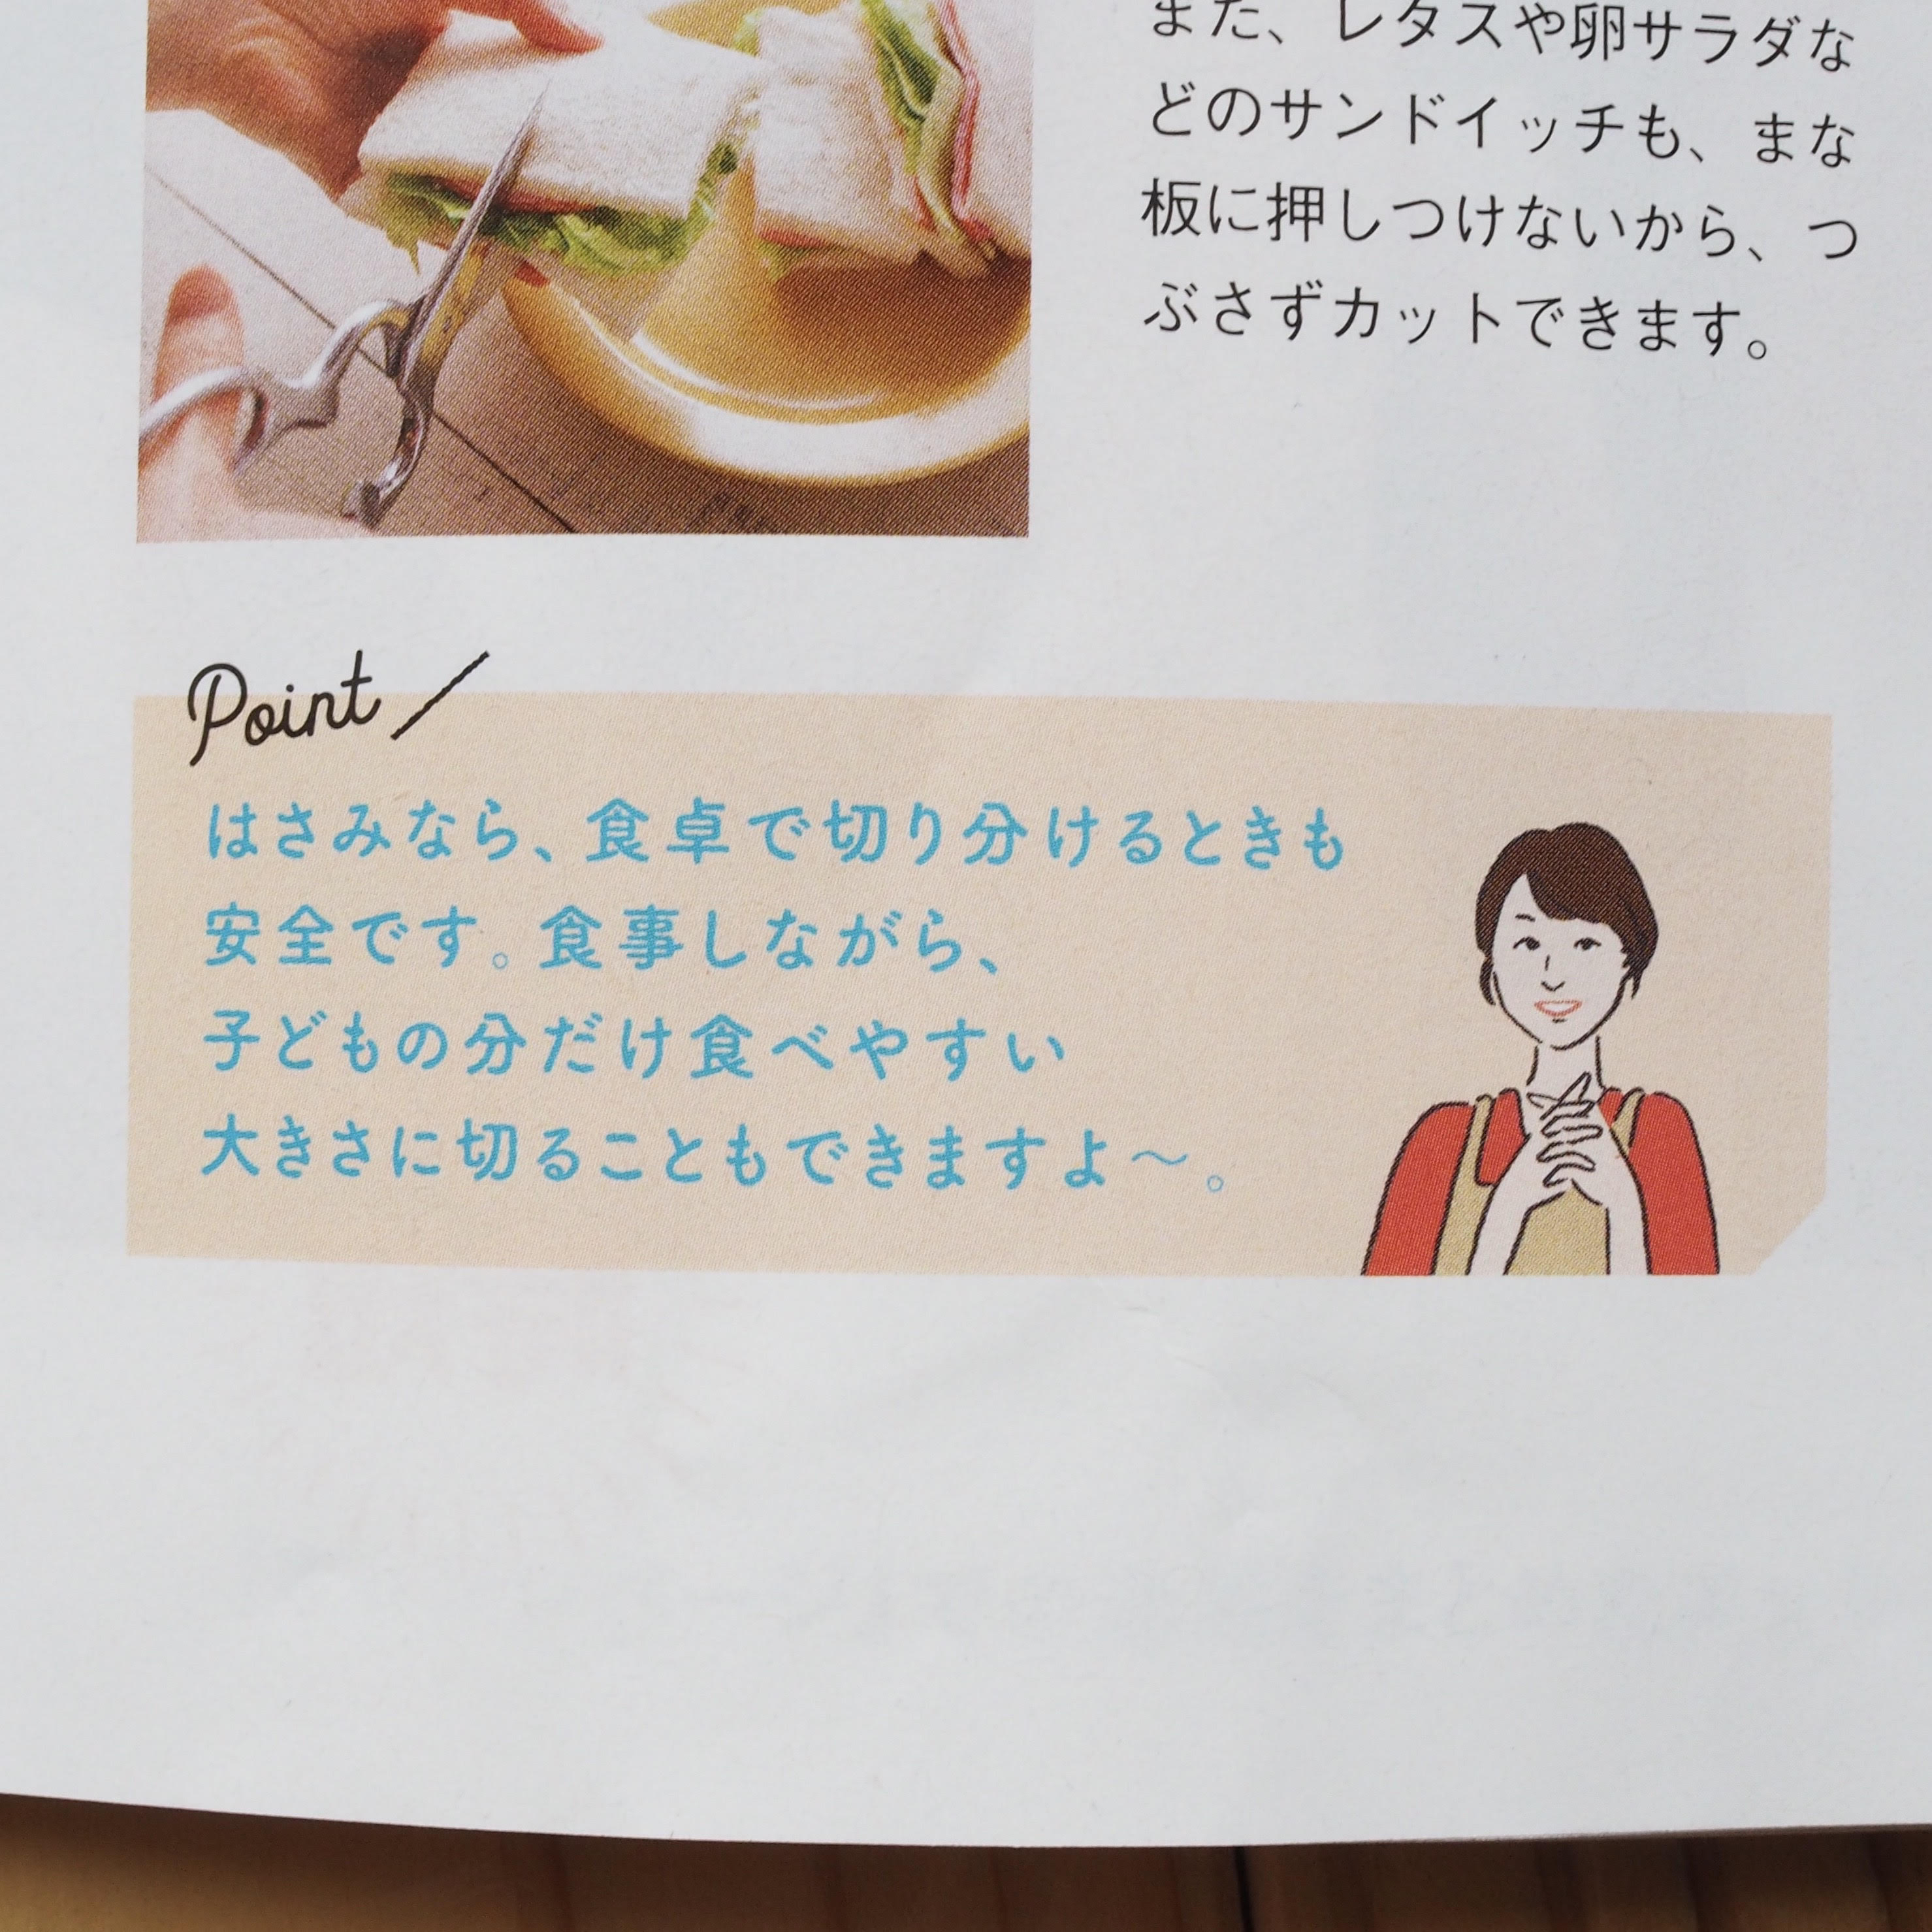 また、レタスや卵サラダな
どのサンドイッチも、まな
板に押しつけないから、つ
ぶさずカットできます。
Point
はさみなら、食卓で切り分けるときも
安全です。食事しながら、
子どもの分だけ食べやすい
大きさに切ることもできますよ〜。